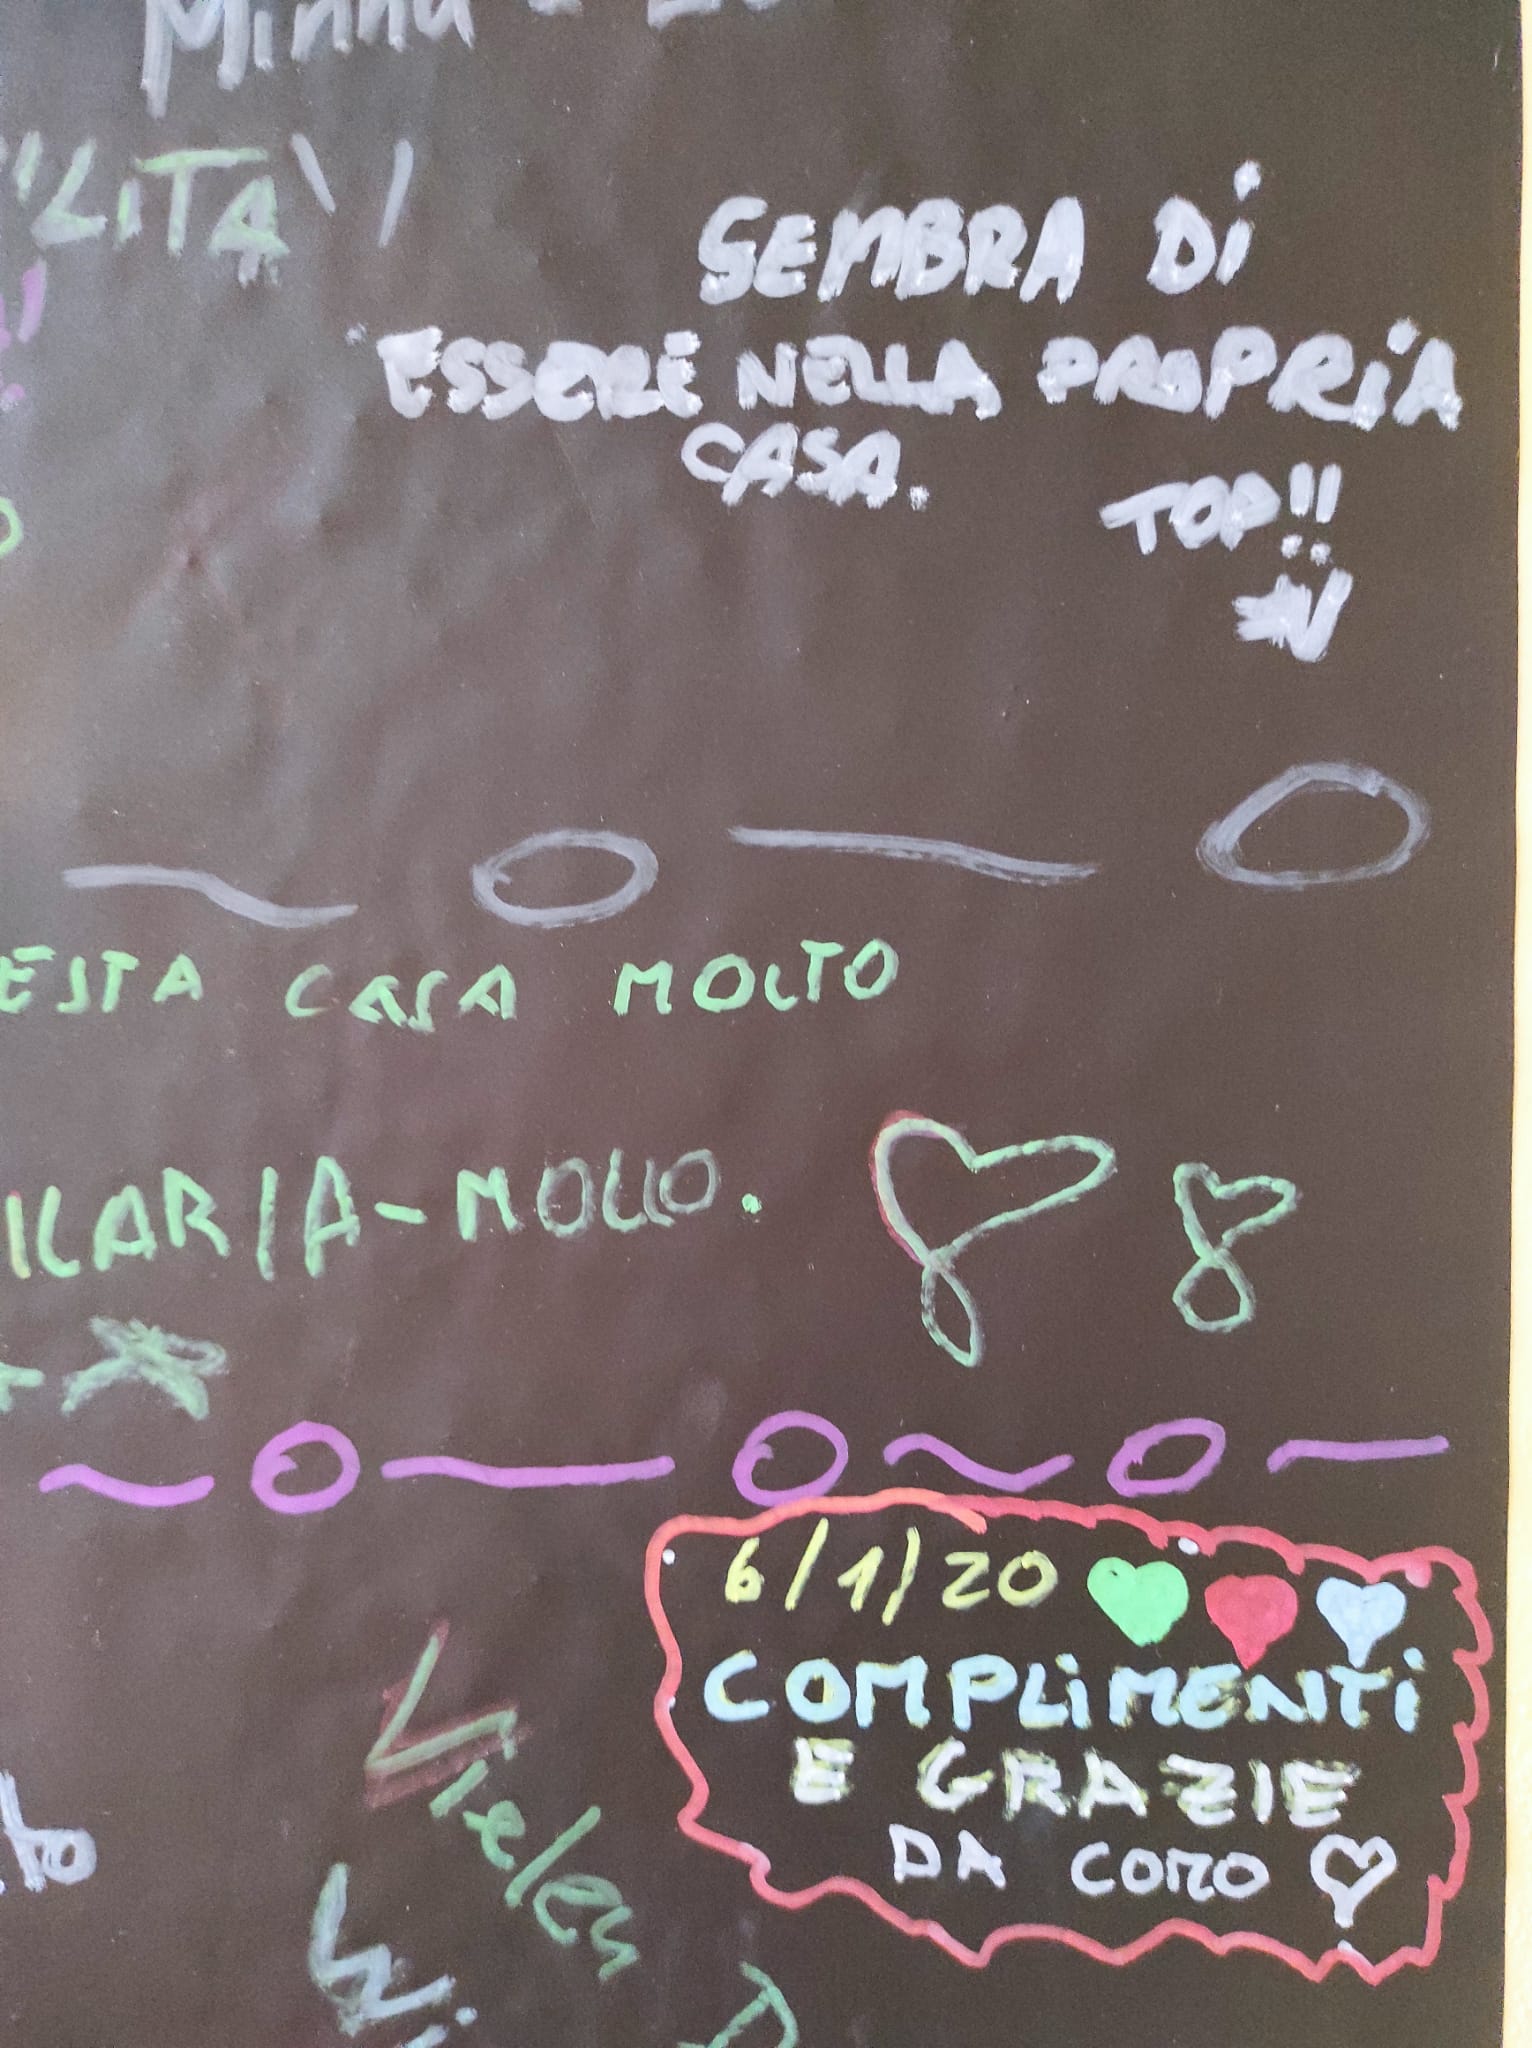 Minna
"LITA'"
SEMBRA DI
ESSERE NELLA PROPRIA
CASA.
TOP!!
ESTA CASA MOLTO
ILARIA-MOLLO.
6/1/20
COMPLIMENTI
E GRAZIE
DA COMO
Vielen D
Wi